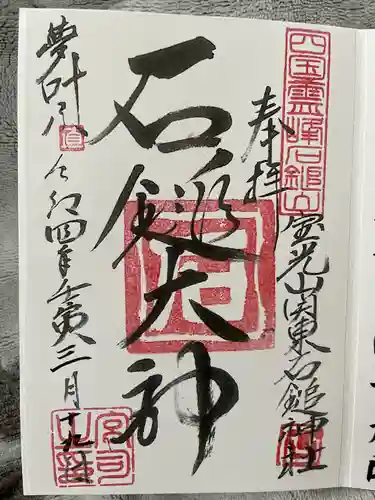 四国霊峰石鎚山
奉拝
宝光山関東石鎚神社
石鎚大神
夢叶
令和四年壬寅三月十九日
宮司